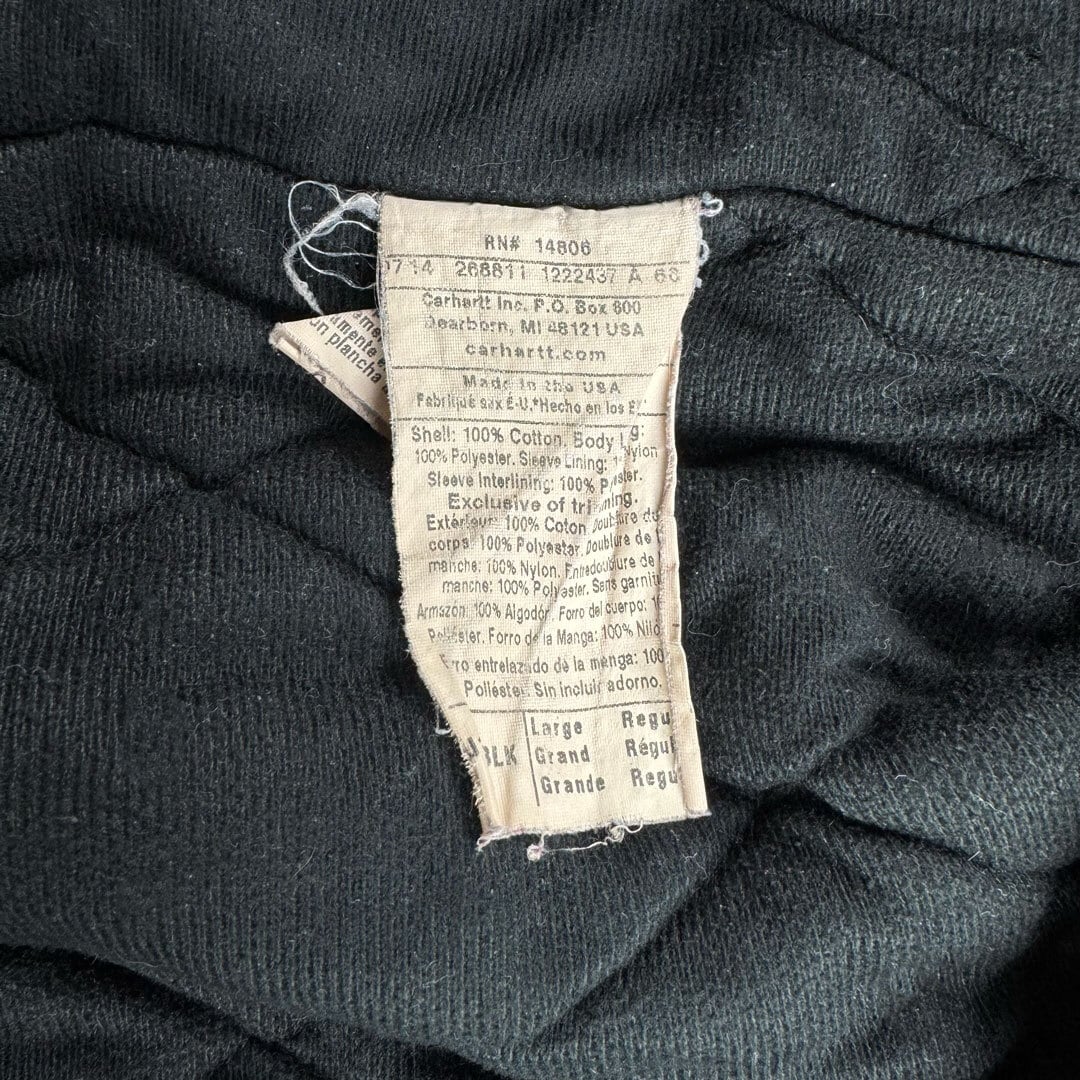 RN# 14806
07 14 268811 1222437 A 68
Carhartt Inc. P.O. Box 600
Dearborn, MI 48121 USA
carhartt.com
Made in the USA
Fabriqué aux E-U.*Hecho en los E
Shell: 100% Cotton. Body
100% Polyester. Sleeve Lining: Nylon
Sleeve Interlining: 100%
Exclusive of
Extérieur: 100% Coton Doublure du
corps: 100% Polyester. Doublure de
manche: 100% Nylon. Entredoublure de
manche: 100% Polyester. Sans garnitu
Armazón: 100% Algodón. Forro del cuerpo:
Poliéster. Forro de la Manga: 100% Niló
entrelazado de la manga: 100
Poliéster. Sin incluir adorno.
BLK
Large Regu
Grand Régul
Grande Regu
plancha